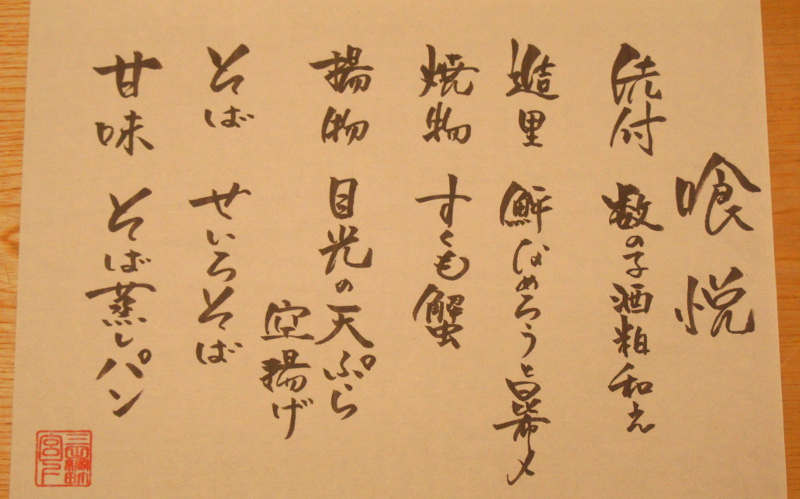 喰悦
先付 数の子酒粕和え
造里 鮃なめろうと昆布〆
焼物 すくも蟹
揚物 目光の天ぷら
空揚げ
そば せいろそば
甘味 そば蒸しパン